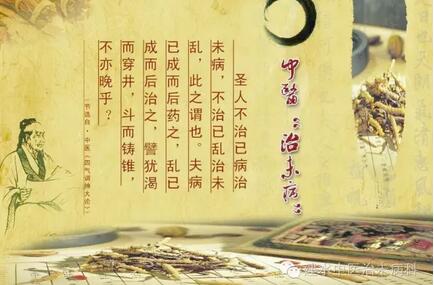 中醫治未病
圣人不治已病治
未病，不治已乱治未
乱，此之谓也。夫病
已成而后药之，乱已
成而后治之，譬犹渴
而穿井，斗而铸锥，
不亦晚乎？
—节选自·中医《四气调神大论》
建水中医治未病科